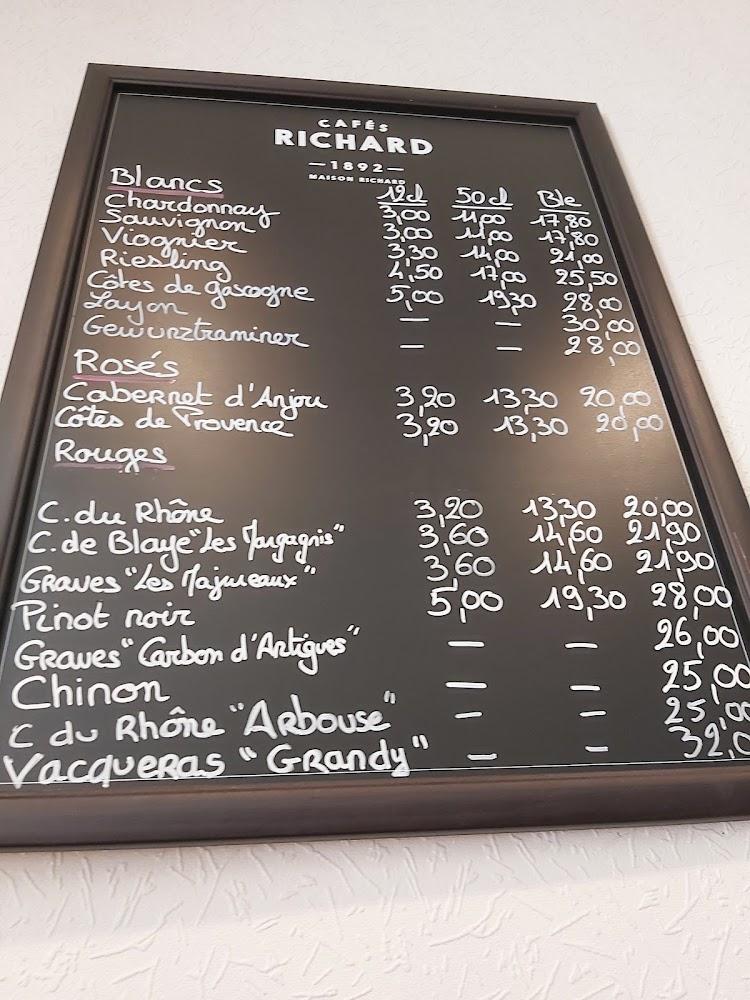 CAFÉS
RICHARD
—1892—
MAISON RICHARD
Blancs 12cl 50cl Ble
Chardonnay 3,00 11,00 17,80
Sauvignon 3,00 11,00 17,80
Viognier 3,30 14,00 21,00
Riesling 4,50 17,00 25,50
Côtes de gascogne 5,00 19,30 28,00
Layon — — 30,00
Gewurztraminer — — 28,00
Rosés
Cabernet d'Anjou 3,20 13,30 20,00
Côtes de Provence 3,20 13,30 20,00
Rouges
C. du Rhône 3,20 13,30 20,00
C. de Blaye "Les 3,60 14,60 21,90
Graves "Les 3,60 14,60 21,90
Pinot noir 5,00 19,30 28,00
Graves "Carbon d'Artigues" — — 26,00
Chinon — — 25,00
C du Rhône "Arbouse" — — 25,00
Vacqueras "Grandy" — — 32,0